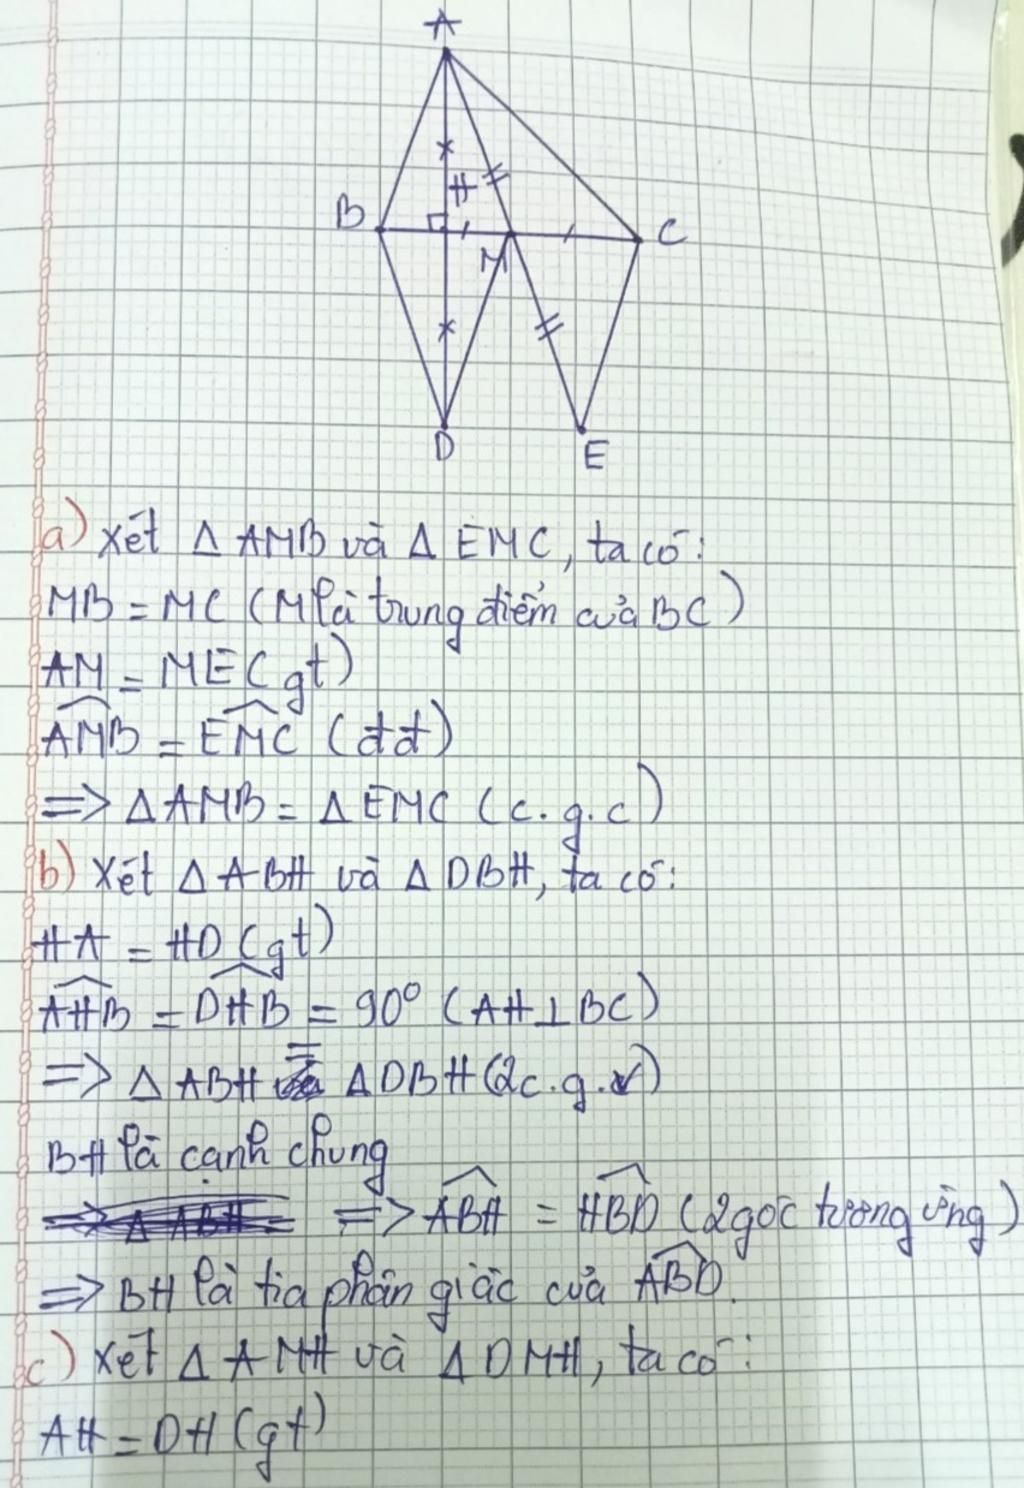 A
B
H
M
C
D
E
a) Xét Δ AMB và Δ EMC, ta có:
MB = MC (M là trung điểm của BC)
AM = ME (gt)
\widehat{AMB} = \widehat{EMC} (đđ)
=> Δ AMB = Δ EMC (c.g.c)
b) Xét Δ ABH và Δ DBH, ta có:
HA = HD (gt)
\widehat{AHB} = \widehat{DHB} = 90° (AH⊥BC)
=> Δ ABH = Δ DBH (2c.g.v)
BH là cạnh chung
=> Δ ABH = => \widehat{ABH} = \widehat{HBD} (2 góc tương ứng)
=> BH là tia phân giác của \widehat{ABD}.
c) Xét Δ AMH và Δ DMH, ta có:
AH = DH (gt)